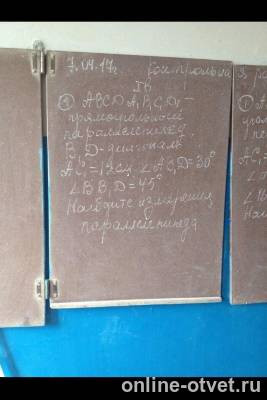 7.04.17г. Контрольна
IВ
① ABCDA₁B₁C₁D₁ –
прямоугольный
параллелепипед.
B₁D – диагональ
AC₁ = 12см ∠AC₁D = 30°
∠BB₁D = 45°
Найдите измерения
параллелепипеда
online-otvet.ru